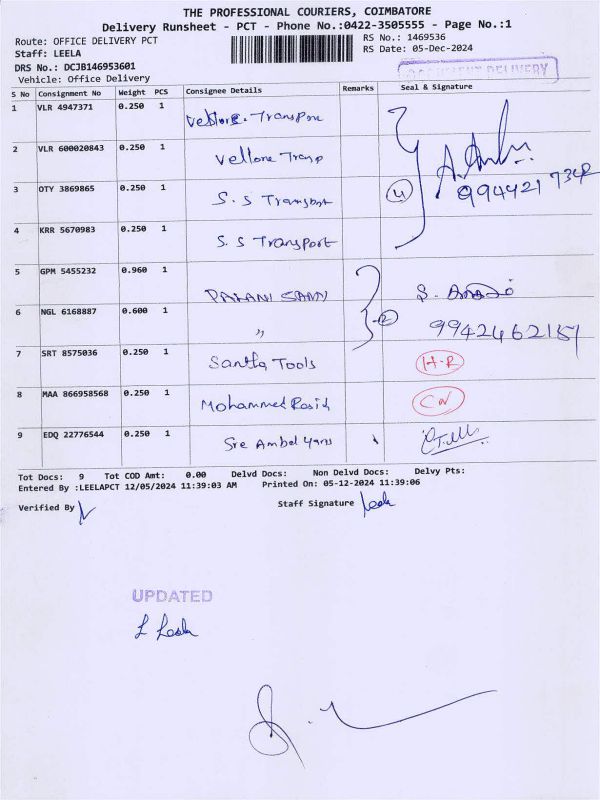 THE PROFESSIONAL COURIERS, COIMBATORE
Delivery Runsheet - PCT - Phone No.:0422-3505555 - Page No.:1
Route: OFFICE DELIVERY PCT RS No.: 1469536
Staff: LEELA RS Date: 05-Dec-2024
DRS No.: DCJB146953601
DOCUMENT DELIVERY
Vehicle: Office Delivery
S No Consignment No Weight PCS Consignee Details Remarks Seal & Signature
1 VLR 4947371 0.250 1 Vellore. Transport
2 VLR 600020843 0.250 1 Vellore Transp
3 OTY 3869865 0.250 1 S. S Transport 4 994421
4 KRR 5670983 0.250 1 S. S Transport
5 GPM 5455232 0.960 1 PALANI SAMY S.
6 NGL 6168887 0.600 1 " 2 9942462151
7 SRT 8575036 0.250 1 Santha Tools H-R
8 MAA 866958568 0.250 1 Mohammed Rasid CN
9 EDQ 22776544 0.250 1 Sre Ambal Yarns
Tot Docs: 9 Tot COD Amt: 0.00 Delvd Docs: Non Delvd Docs: Delvy Pts:
Entered By :LEELAPCT 12/05/2024 11:39:03 AM Printed On: 05-12-2024 11:39:06
Verified By Staff Signature Leela
UPDATED
L Leela